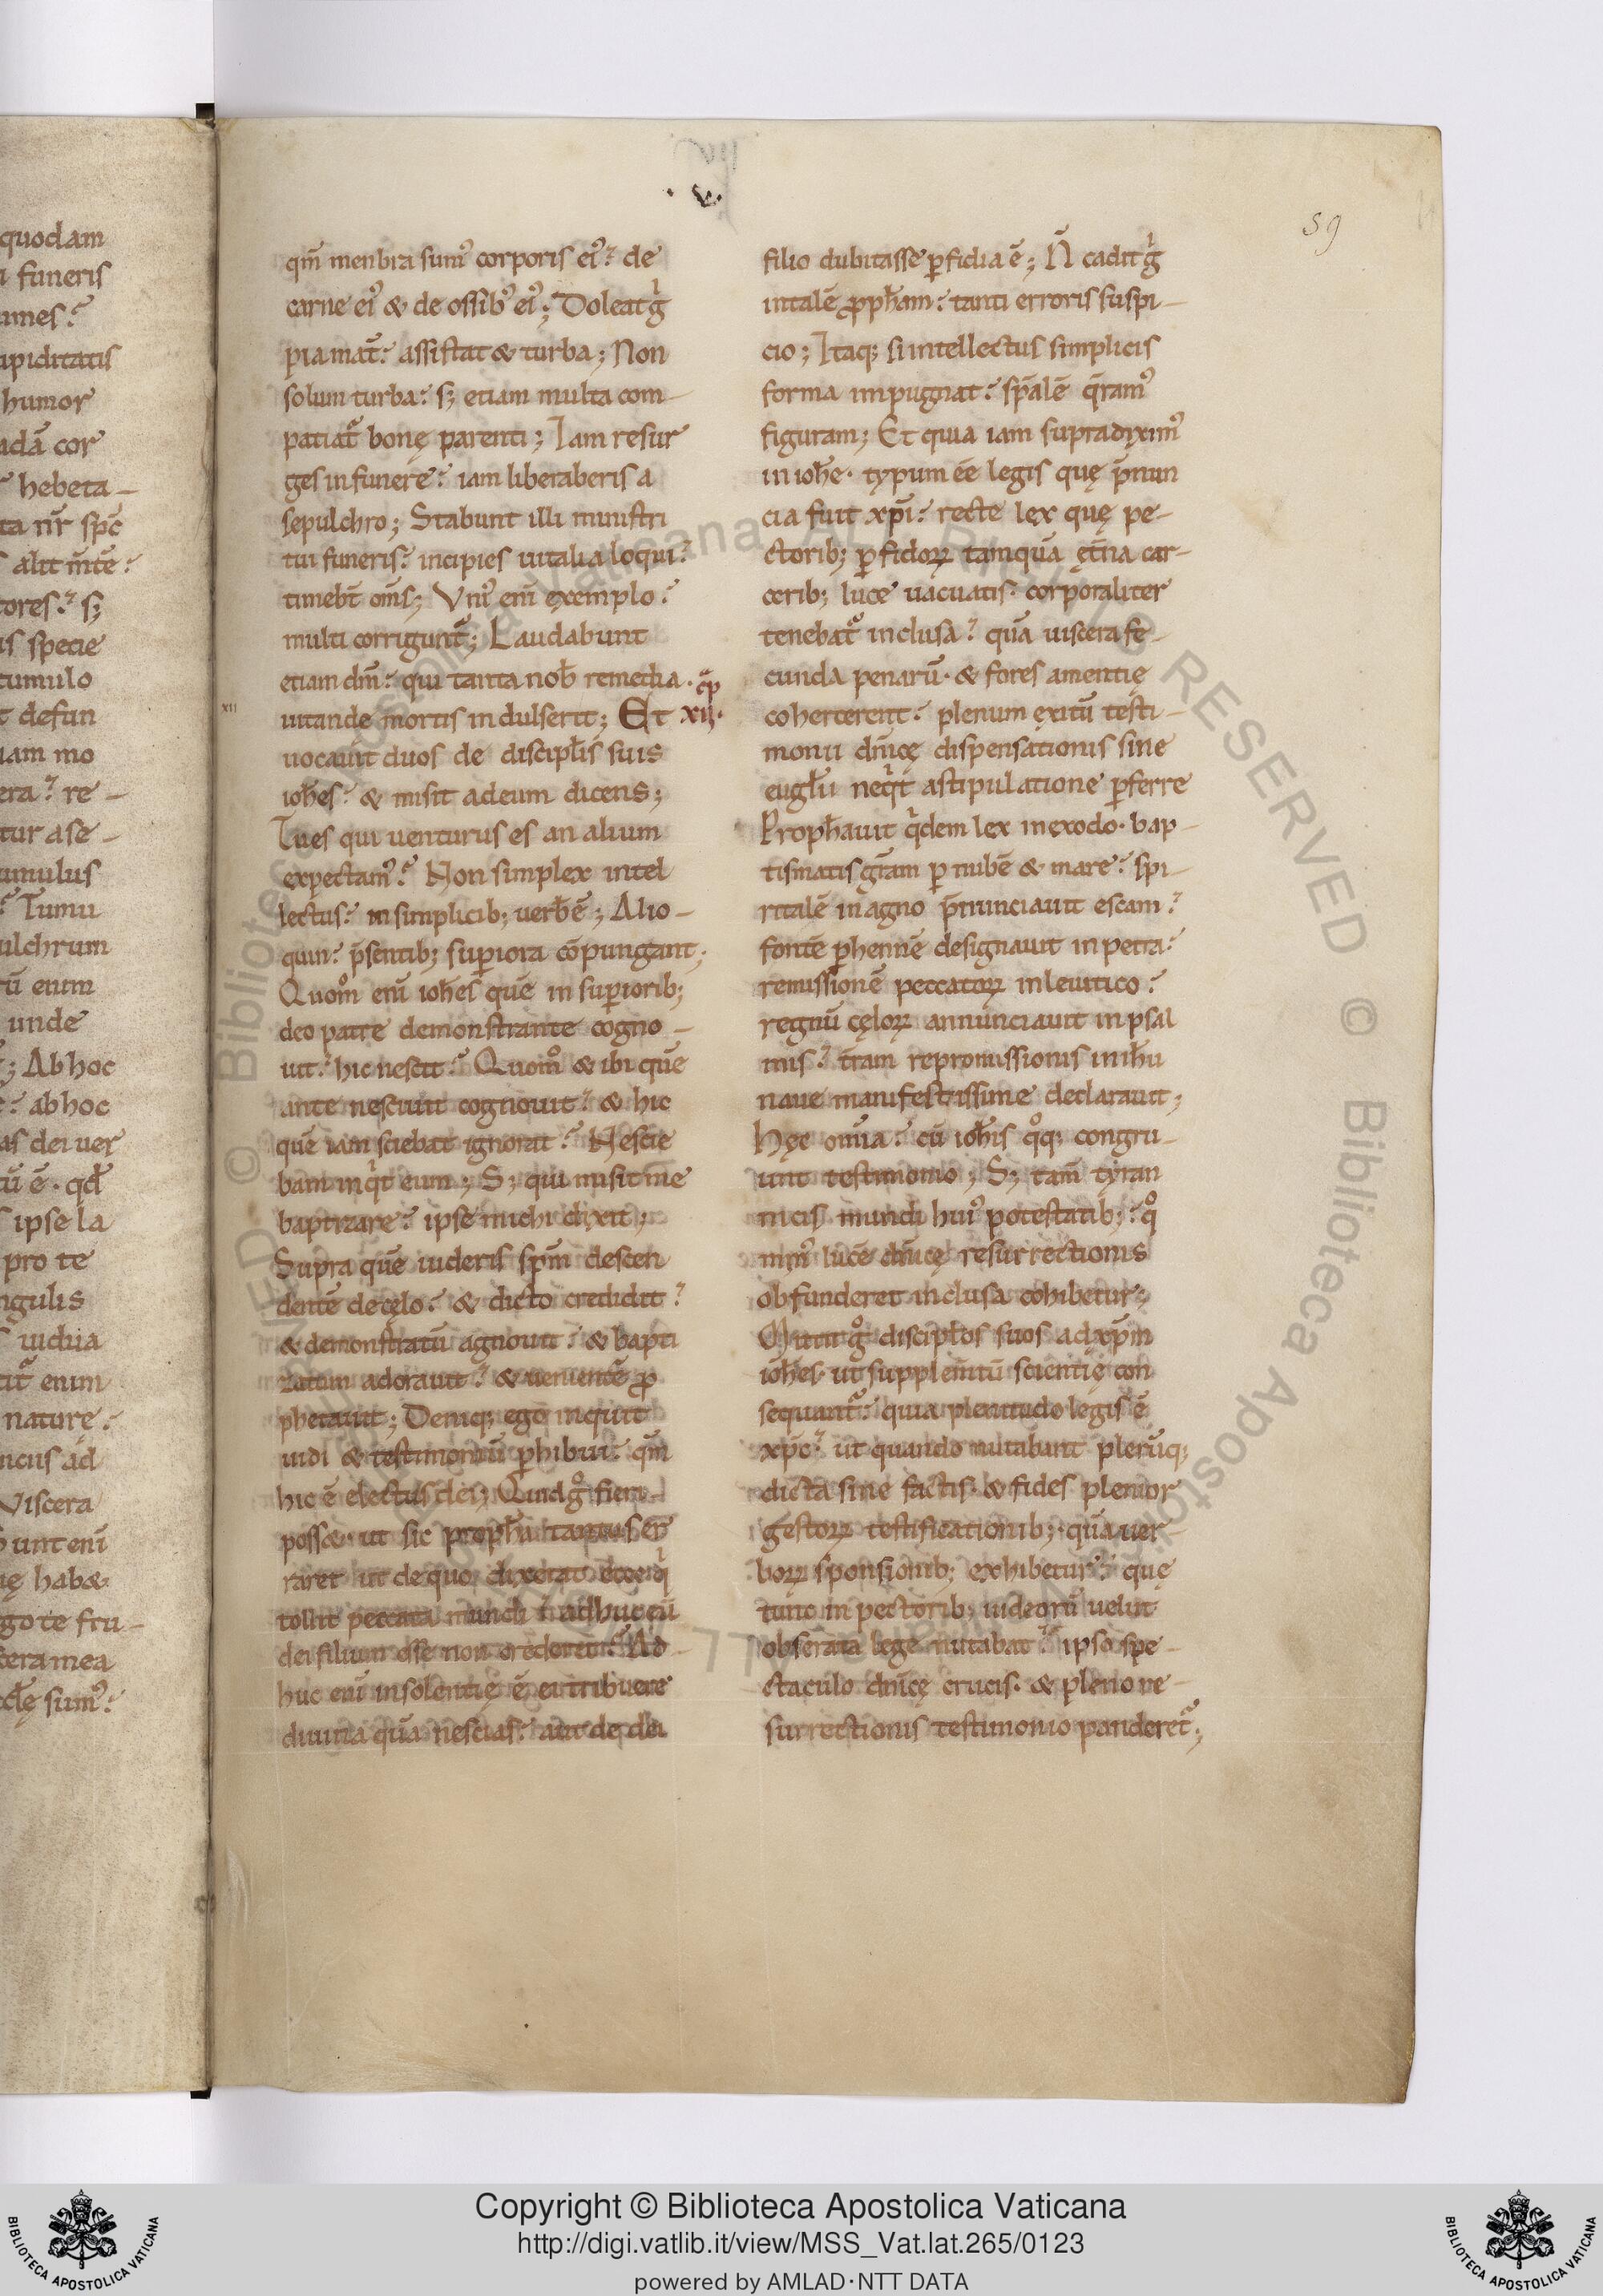 quodam
funeris
umes?
upiditatis
humor
adā cor
hebeta-
ta nr̄ spc̄
alit m̄te?
tores? s;
is specie
tumulo
t defun
iam mo
era? re-
tur ase-
umulus
Tumu
ulchrum
rū enim
unde
; Ab hoc
? ab hoc
as dei uer
tū ē. qđ
ipse la
pro te
ngulis
uidua
enim
naturę?
ncus ad
Viscera
unt enī
ię hab&
go te fru-
cera mea
clę sumꝰ?
.v.
59
qm̄ menbra sumꝰ corporis eiꝰ? de
carne eiꝰ & de ossibꝰ eiꝰ; Doleat gͥ
pia mat̄? assistat & turba; Non
solum turba? s; etiam multa com-
patiat᷑ bonę parenti; Iam resur
ges in funere? iam liberaberis a
sepulchro; Stabunt illi ministri
tui funeris? incipies uitalia loqui?
timebt̄ oms̄; Vniꝰ enī exemplo?
multi corrigunt᷑; Laudabunt
etiam dm̄? qui tanta nob̄ remedia.
uitande mortis indulserit; Et
cp̄
XII.
xii
uocauit duos de discipłis suis
ioħes? & misit ad eum dicens;
Tu es qui uenturus es an alium
expectamꝰ? Non simplex intel
lectus? in simplicib; uerb̄ ē; Alio-
quin? p̄sentib; supiora cōpungant;
Quom̊ enī ioħes quē in supiorib;
deo patre demonstrante cogno-
uit? hic nescit? Quom̊ & ibi quē
ante nesciuit cognouit? & hic
quē iam sciebat ignorat? Nescie
bam inqͥt eum; S; qui misit me
baptizare? ipse michi dixit;
Supra quē uideris spm̄ descen
dentē de cęlo? & dicto credidit?
& demonstratū agnouit? & bapti
zatum adorauit? & uenientē ꝓ
phetauit; Deniq; ego inquit
uidi & testimoniū ꝑhibui? qm̄
hic ē electus dei; Quid gͦ fieri
poss&. ut sic propħa tantus er
raret ut de quo dixerat ecce qͥ
tollit peccata mundi? adhuc eū
dei filium esse non crederet? Ad-
huc enī insolentię ē ei tribuere
diuina quā nescias? aut de dei
filio dubitasse ꝑfidia ē; N̄ cadit gͥ
in talē ꝓpħam? tanti erroris suspi-
cio; Itaq; si intellectus simplicis
forma impugnat? sp̄alē q̄ramꝰ
figuram; Et quia iam supra diximꝰ
in ioħe. typum eē legis quę p̄nun
cia fuit xp̄i? recte lex quę pe-
ctorib; ꝑfidoꝝ tamquā ęt̄na car-
cerib; luce uacuatis. corporaliter
tenebat᷑ inclusa? quā uiscera fe-
cunda penarū. & fores amentię
cohercerent? plenum exitū testi-
monii dn̄icę dispensationis sine
eugłii neqͥt astipulatione ꝑferre
Propħauit qͥdem lex in exodo. bap-
tismatis gr̄am ꝑ nubē & mare? spi-
ritalē in agno p̄nunciauit escam?
fontē ꝑhennē designauit in petra?
remissionē peccatoꝝ in leuitico?
regnū cęloꝝ annunciauit in psal
mis? tr̄am repromissionis in iħu
naue manifestissime declarauit;
Hęc omīa? cū ioħis qͦq; congru-
unt testimonio; S; tam̄ tyran
nicis mundi huiꝰ potestatib;? qͦ
minꝰ lucē dn̄icę resurrectionis
obfunderet inclusa cohibetur;
Mittit gͦ discipłos suos ad xp̄m
ioħes. ut supplem̄tū scientię con
sequant᷑? quia plenitudo legis ē
xp̄c? ut quando nutabunt plerūq;
dicta sine factis. & fides plenior
gestoꝝ testificationib;. quā uer-
boꝝ sponsionib; exhibetur? quę
tunc in pectorib; iudeorū uelut
obserata lege nutabat? ipso spe-
ctaculo dn̄icę crucis. & pleno re-
surrectionis testimonio panderet᷑;
Copyright © Biblioteca Apostolica Vaticana
http://digi.vatlib.it/view/MSS_Vat.lat.265/0123
powered by AMLAD·NTT DATA
BIBLIOTECA APOSTOLICA VATICANA
BIBLIOTECA APOSTOLICA VATICANA